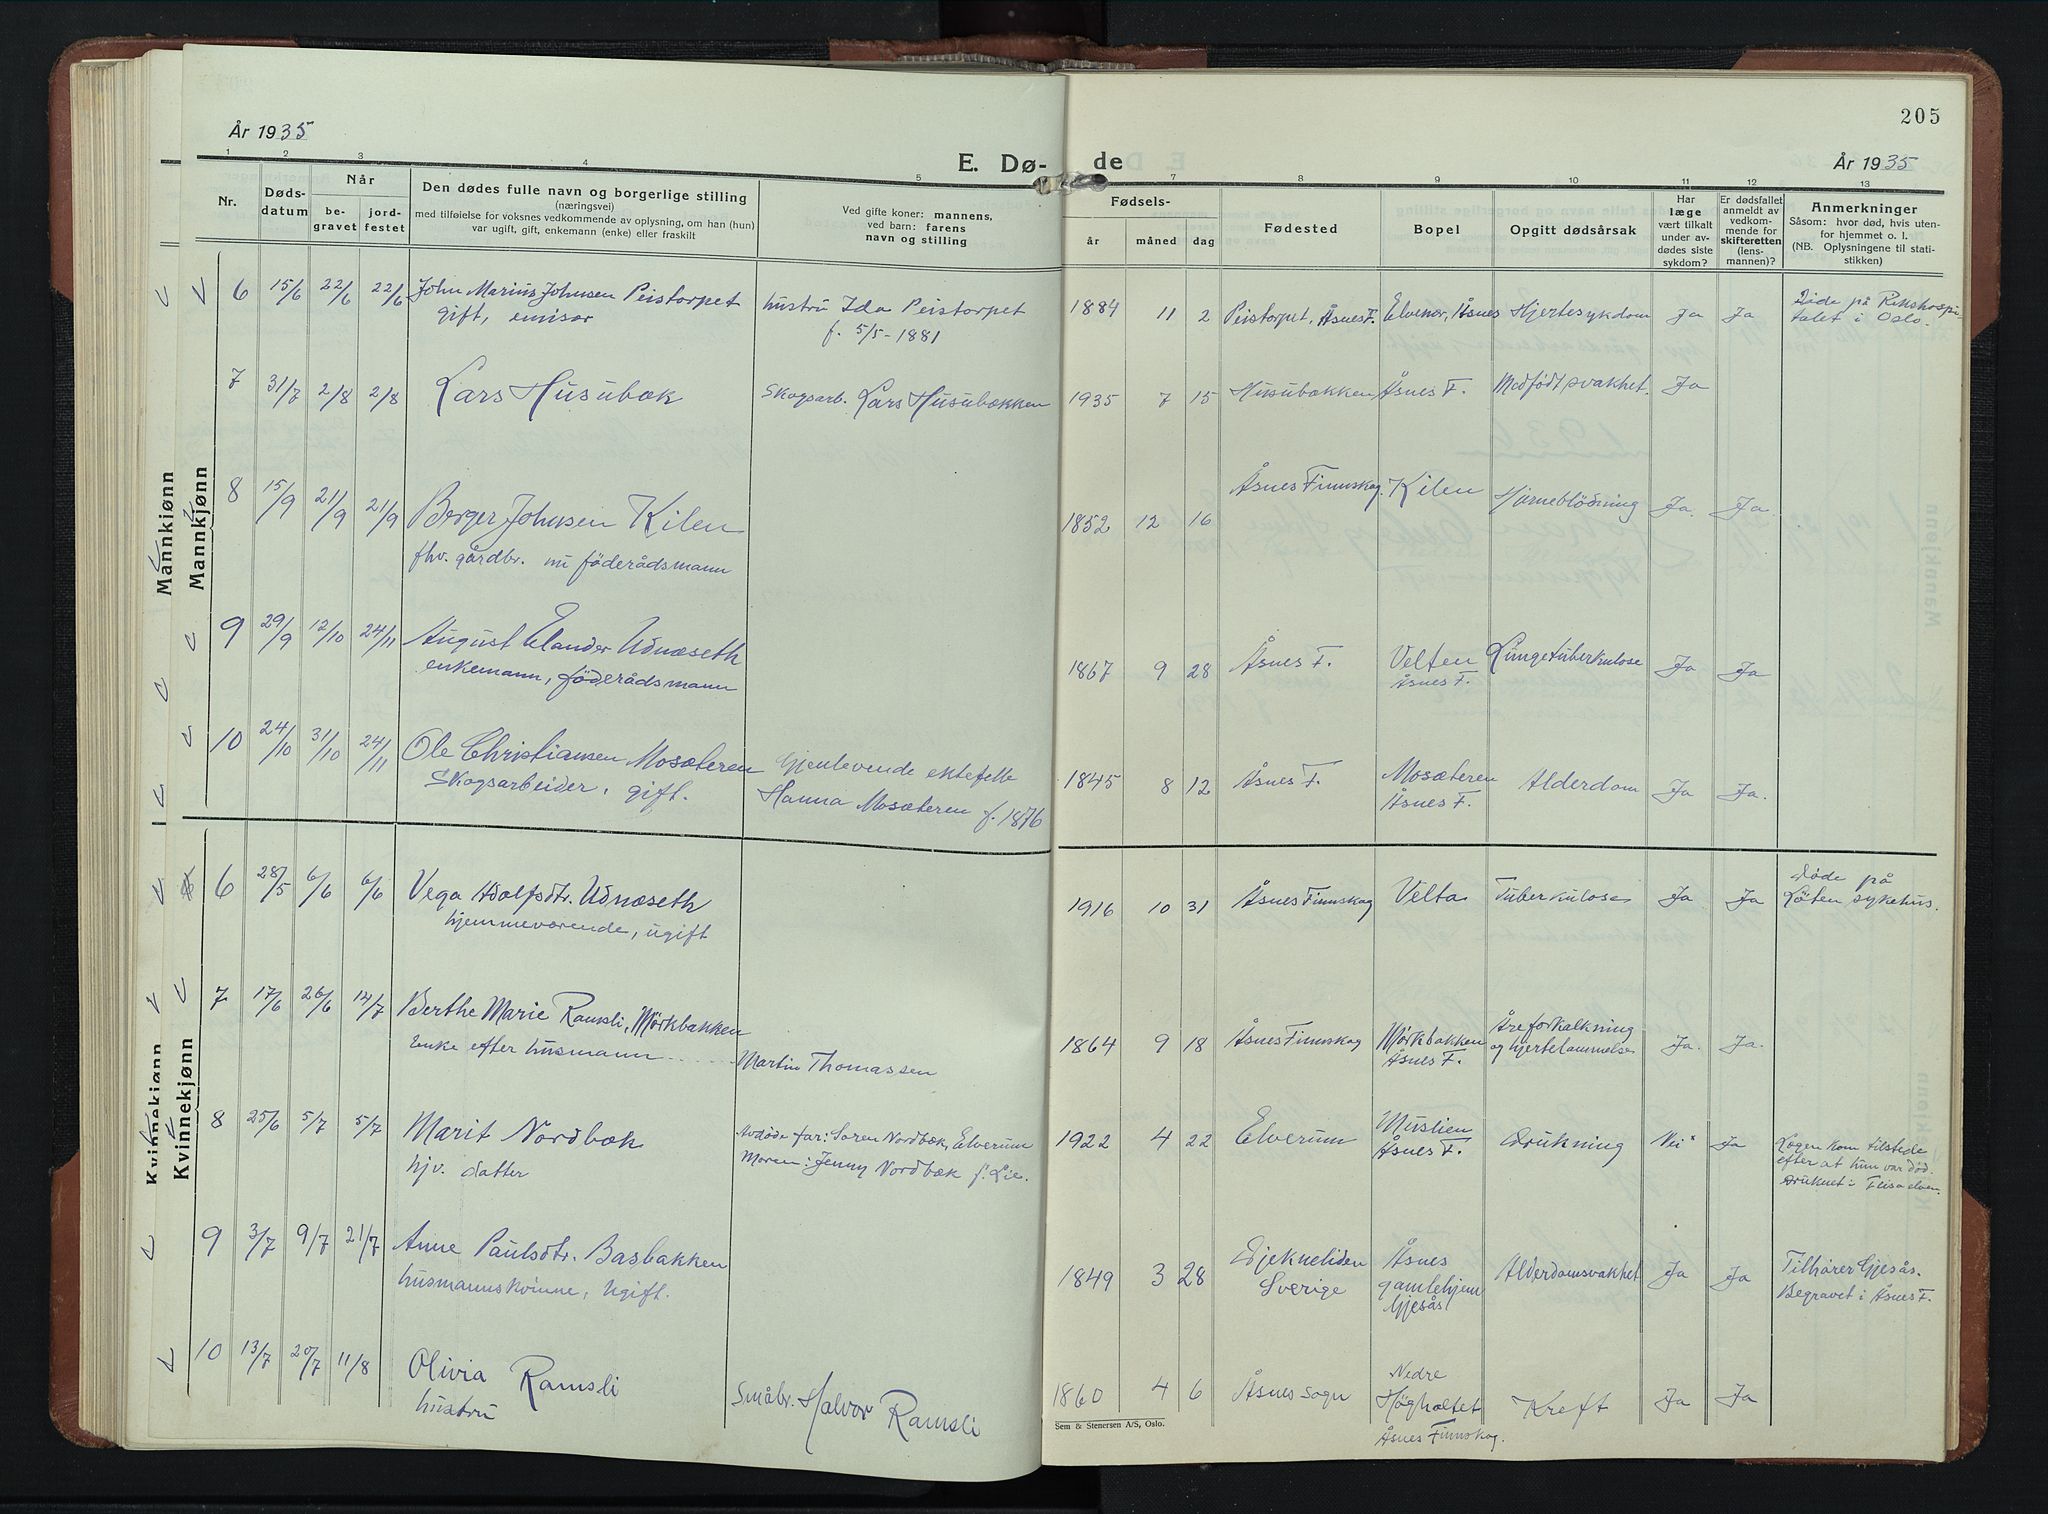 År 1935
E. Dø-
de
205
År 1935
1 2 3 4 5 7 8 9 10 11 12 13
Nr.
Døds-
datum
Når
be-
gravet
jord-
festet
Den dødes fulle navn og borgerlige stilling
(næringsvei)
med tilføielse for voksnes vedkommende av oplysning, om han (hun)
var ugift, gift, enkemann (enke) eller fraskilt
Ved gifte koner: mannens,
ved barn: farens
navn og stilling
Fødsels-
år måned dag
Fødested
Bopel
Opgitt dødsårsak
Har
læge
vært tilkalt
under av-
dødes siste
sykdom?
Er dødsfallet
anmeldt av
vedkom-
mende for
skifteretten
(lens-
mannen)?
Anmerkninger
Såsom: hvor død, hvis uten-
for hjemmet o. l.
(NB. Oplysningene til stati-
stikken)
Mannkjønn
Mannkjønn
6 15/6 22/6 22/6 John Marius Johnsen Peistorpet
gift, emisær
hustru Ida Peistorpet
f. 5/5-1881
1884 11 2 Peistorpet, Åsnes F. Elvenor, Åsnes Hjertesykdom Ja Ja Døde på Rikshospi-
talet i Oslo.
7 31/7 2/8 2/8 Lars Husubæk
Skogsarb. Lars Husubækken
1935 7 15 Husubækken Åsnes F. Medfødt svakhet. Ja
8 15/9 21/9 21/9 Berger Johnsen Kilen
fhv. gårdbr. nu föderådsmann
1852 12 16 Åsnes Finnskog. Kilen Hjerneblödning Ja. Ja.
9 29/9 12/10 24/11 August Elander Udnæseth
enkemann, föderådsmann
1867 9 28 Åsnes F. Velten
Åsnes F. Lungetuberkulose Ja Ja
10 24/10 31/10 24/11 Ole Christiansen Mosæteren
Skogsarbeider, gift.
Gjenlevende ektefelle
Hanna Mosæteren f. 1876
1845 8 12 Åsnes F. Mosæteren
Åsnes F. Alderdom Ja Ja.
Kvinnekjønn
Kvinnekjønn
6 28/5 6/6 6/6 Vega Adolfsdtr. Udnæseth
hjemmeværende, ugift
1916 10 31 Åsnes Finnskog Velta Tuberkulose Ja Ja Døde på
Löten sykehus.
7 17/6 26/6 14/7 Berthe Marie Ramsli, Mörkbakken
Enke efter husmann
Martin Thomassen
1864 9 18 Åsnes Finnskog Mörkbakken
Åsnes F. Åreforkalkning
og hjertelammelse Ja. Ja.
8 25/6 5/7 5/7 Marit Nordbæk
hjv. datter
Avdöde far: Soren Nordbæk, Elverum
Moren: Jenny Nordbæk f. Lie.
1922 4 22 Elverum Muslien
Åsnes F. Drukning Nei Ja Lægen kom tilstede
efter at hun var död.
Druknet i Flisaelven.
9 3/7 9/7 21/7 Anne Paulsdtr. Basbakken
husmannskvinne, ugift.
1849 3 28 Djekneliden
Sverige Åsnes
gamlehjem
Gjesås Alderdomsvakhet Ja Ja Tilhører Gjesås.
Begravet i Åsnes F.
10 13/7 20/7 11/8 Olivia Ramsli
hustru
Småbr. Halvor Ramsli
1860 4 6 Åsnes sogn Nedre
Högholtet
Åsnes Finnskog. Kreft Ja Ja
Sem & Stenersen A/S, Oslo.